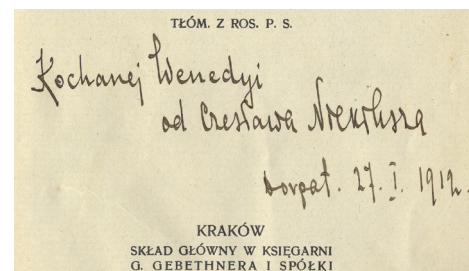 TŁÓM. Z ROS. P. S.
Kochanej Wenedyi
od Czesława
Dorpat. 27. I. 1912.
KRAKÓW
SKŁAD GŁÓWNY W KSIĘGARNI
G. GEBETHNERA I SPÓŁKI